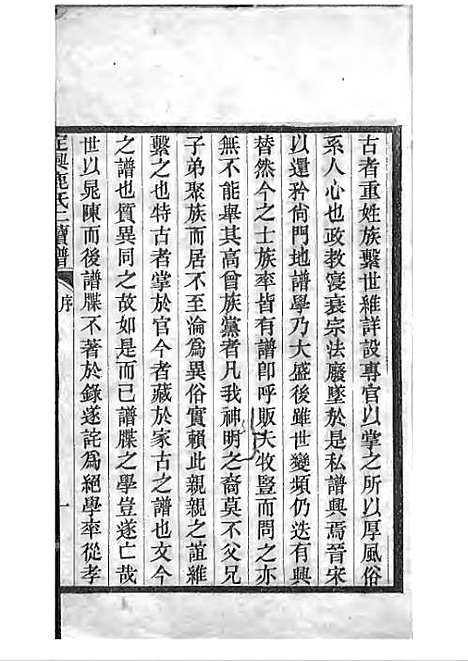 古者重姓族繫世維詳設專官以掌之所以厚風俗
系人心也政教寖衰宗法廢墜於是私譜興焉晉宋
以還矜尙門地譜學乃大盛後雖世變頻仍迭有興
替然今之士族率皆有譜卽呼販夫牧豎而問之亦
無不能舉其高曾族黨者凡我神明之裔莫不父兄
子弟聚族而居不至淪爲異俗實賴此親親之誼維
繫之也特古者掌於官今者藏於家古之譜也文今
之譜也質異同之故如是而已譜牒之學豈遂亡哉
世以晁陳而後譜牒不著於錄遂詫爲絕學率從孝
定興鹿氏二續譜
序
一